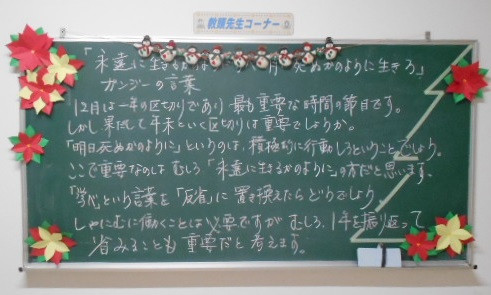 教頭先生コーナー
「永遠に生きるか 死ぬかのように生きろ」
ガンジーの言葉
12月は一年の区切りであり 最も重要な時間の節目です。
しかし果たして年末という区切りは重要でしょうか。
「明日死ぬかのように」というのは、積極的に行動しろということでしょう。
ここで重要なのは むしろ 「永遠に生きるかのように」の方だと思います。
「学ぶ」という言葉を 「反省」に 置き換えたらどうでしょう
しゃにむに働くことは 必要ですが むしろ、1年を振り返って
省みることも 重要だと 考えます。